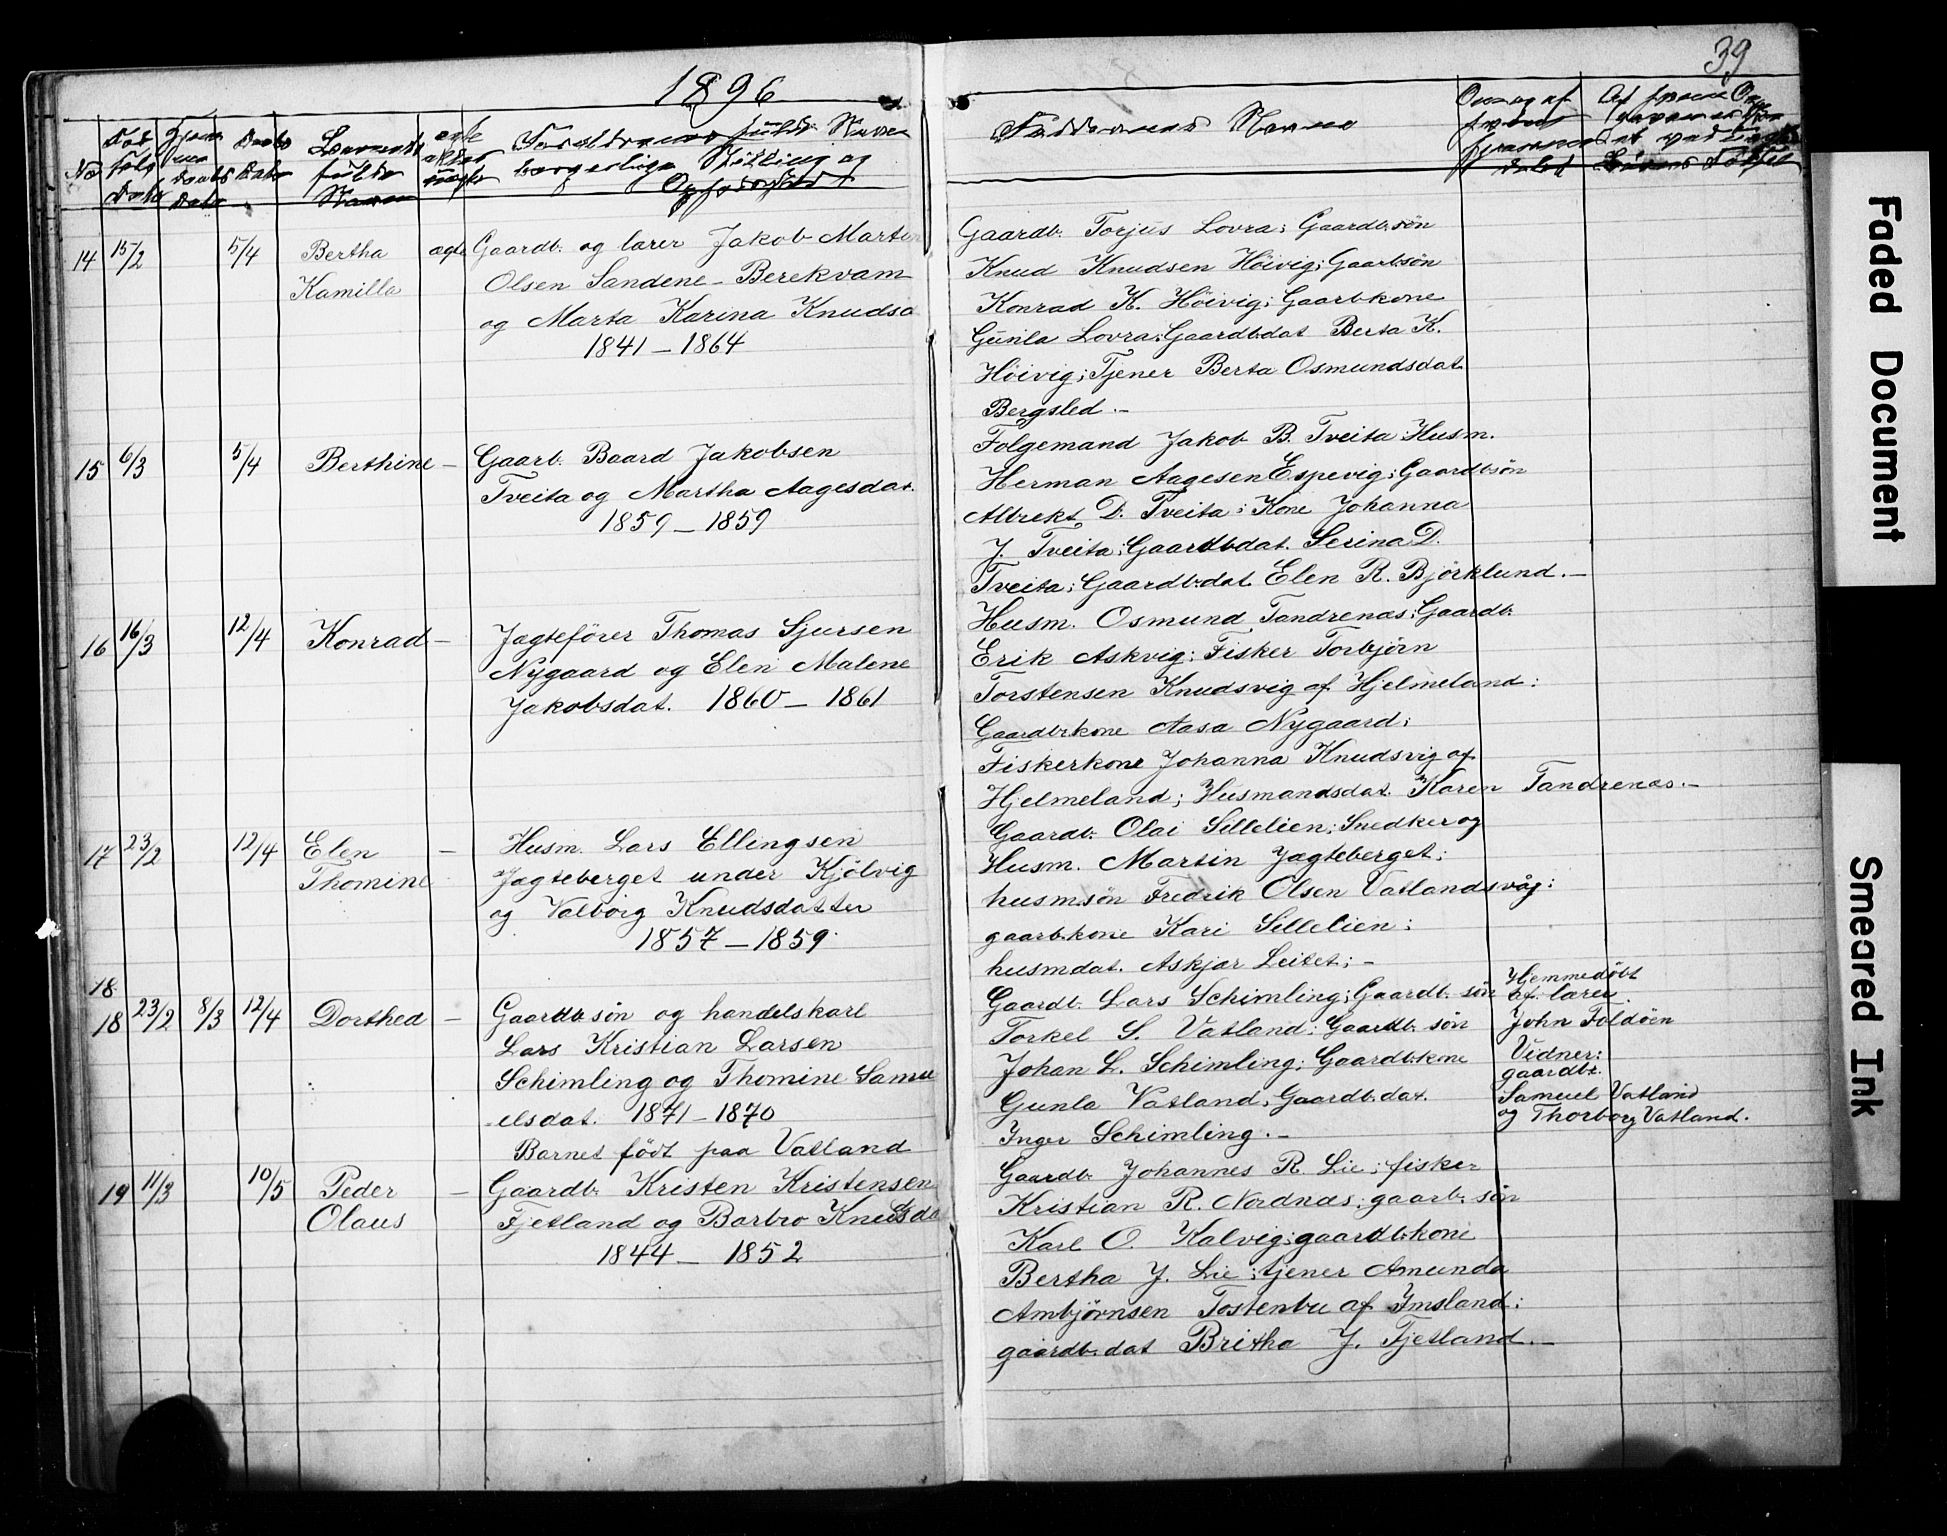 39
1896
No
Födsels Dato
Hjemme daabs Dato
Daabs Dato
Barnets fulde Navn
ægte eller uægte
Forældrenes fulde Navne
borgerlige Stilling og
Opholdssted
Faddernes Navne
14 15/2 5/4 Bertha ægte Gaardb. og lærer Jakob Marton
Kamilla Olsen Sandene - Berekvam
og Marta Karina Knudsd
1841 - 1864
Gaardb. Torjus Lovra; Gaardb.sön
Knud Knudsen Höivig; Gaarbsön
Konrad K. Höivig; Gaarbkone
Gunla Lovra; Gaardb.dat Berta K.
Höivig; Tjener Berta Osmundsdat
Bergsled. -
15 6/3 5/4 Berthine - Gaarb. Baard Jakobsen
Tveita og Martha Aagesdat.
1859 - 1859
Folgemand Jakob B. Tveita Husm.
Herman Aagesen Espevig; Gaardbsön
Albrekt D. Tveita; Kone Johanna
J. Tveita; Gaardbdat. Serina D.
Tveita; Gaardb.dat Elen R. Björklund. -
16 16/3 12/4 Konrad - Jagtefører Thomas Sjursen
Nygaard og Elen Malene
Jakobsdat. 1860 - 1861
Husm. Osmund Tandrenæs; Gaardb.
Erik Askvig; Fisker Torbjörn
Torstensen Knudsvig af Hjelmeland;
Gaardb.kone Aasa Nygaard;
Fiskerkone Johanna Knudsvig af
Hjelmeland; Husmandsdat. Karen Tandrenæs. -
17 23/2 12/4 Elen - Husm. Lars Ellingsen
Thomine Jagteberget under Kjölvig
og Valborg Knudsdatter
1857 - 1859
Gaardb. Olai Sillelien; Snedker og
Husm. Martin Jagteberget;
husmsön Fredrik Olsen Vatlandsvåg;
gaarb.kone Kari Sillelien;
husmdat. Askjar Leitet; -
18.
18 23/2 8/3 12/4 Dorthea - Gaardbsön og handelskarl
Lars Kristian Larsen
Schimling og Thomine Samu
elsdat. 1871 - 1870
Barnet födt paa Vatland
Gaardb. Lars Schimling; Gaardb. sön
Torkel S. Vatland; Gaardb. sön
Johan L. Schimling; Gaardb.kone
Gunla Vatland; Gaardb.dat.
Inger Schimling. -
Hjemmedöbt
af lærer
John Foldöen
Vidner:
gaardbr.
Samuel Vatland
og Thorborg Vatland.
19 11/3 10/5 Peder - Gaardb. Kristen Kristensen
Olaus Fjetland og Barbro Knudsda
1844 - 1852
Gaardb. Johannes R. Lie; fisker
Kristian R. Nordnæs; gaarb. sön
Karl O. Kalvig; gaardb.kone
Bertha J. Lie; tjener Amunda
Ambjørnsen Tostenbu af Imsland;
gaardb.dat Britha J. Fjetland. -
Faded Document
Smeared Ink